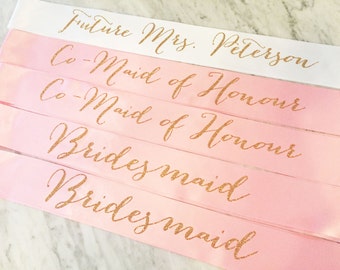 Future Mrs. Peterson
Co-Maid of Honour
Co-Maid of Honour
Bridesmaid
Bridesmaid